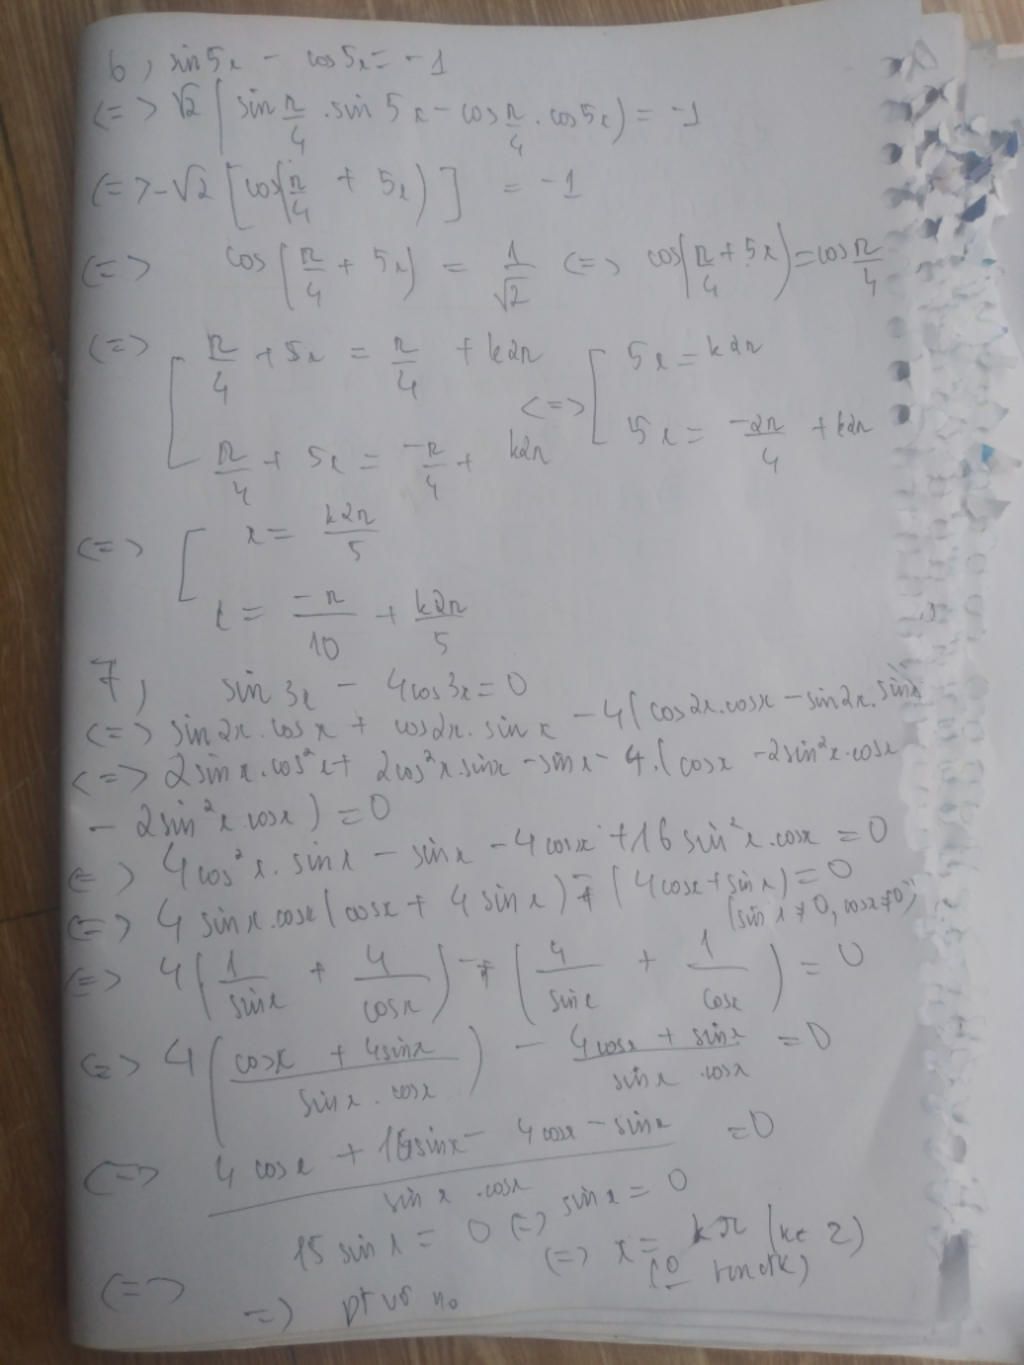 6, sin5x - cos5x = -1
<=> √2 (sin π/4 . sin 5x - cos π/4 . cos5x) = -1
<=> -√2 [cos(π/4 + 5x)] = -1
<=> cos(π/4 + 5x) = 1/√2 <=> cos(π/4 + 5x) = cos π/4
<=> [ π/4 + 5x = π/4 + k2π <=> [ 5x = k2π
π/4 + 5x = -π/4 + k2π 5x = -2π/4 + k2π
<=> [ x = k2π/5
x = -π/10 + k2π/5
7, sin3x - 4cos3x = 0
<=> sin2x.cosx + cos2x.sinx - 4(cos2x.cosx - sin2x.sinx
<=> 2sinx.cos²x + 2cos²x.sinx - sinx - 4.(cosx - 2sin²x.cosx
- 2sin²x.cosx) = 0
<=> 4cos²x.sinx - sinx - 4cosx + 16sin²x.cosx = 0
<=> 4sinx.cosx(cosx + 4sinx) - (4cosx + sinx) = 0
(sinx ≠ 0, cosx ≠ 0)
<=> 4(1/sinx + 4/cosx) - (4/sinx + 1/cosx) = 0
<=> 4((cosx + 4sinx)/(sinx.cosx)) - (4cosx + sinx)/(sinx.cosx) = 0
<=> (4cosx + 16sinx - 4cosx - sinx)/(sinx.cosx) = 0
<=> 15sinx = 0 <=> sinx = 0
<=> x = kπ (k∈Z)
=> pt vô no